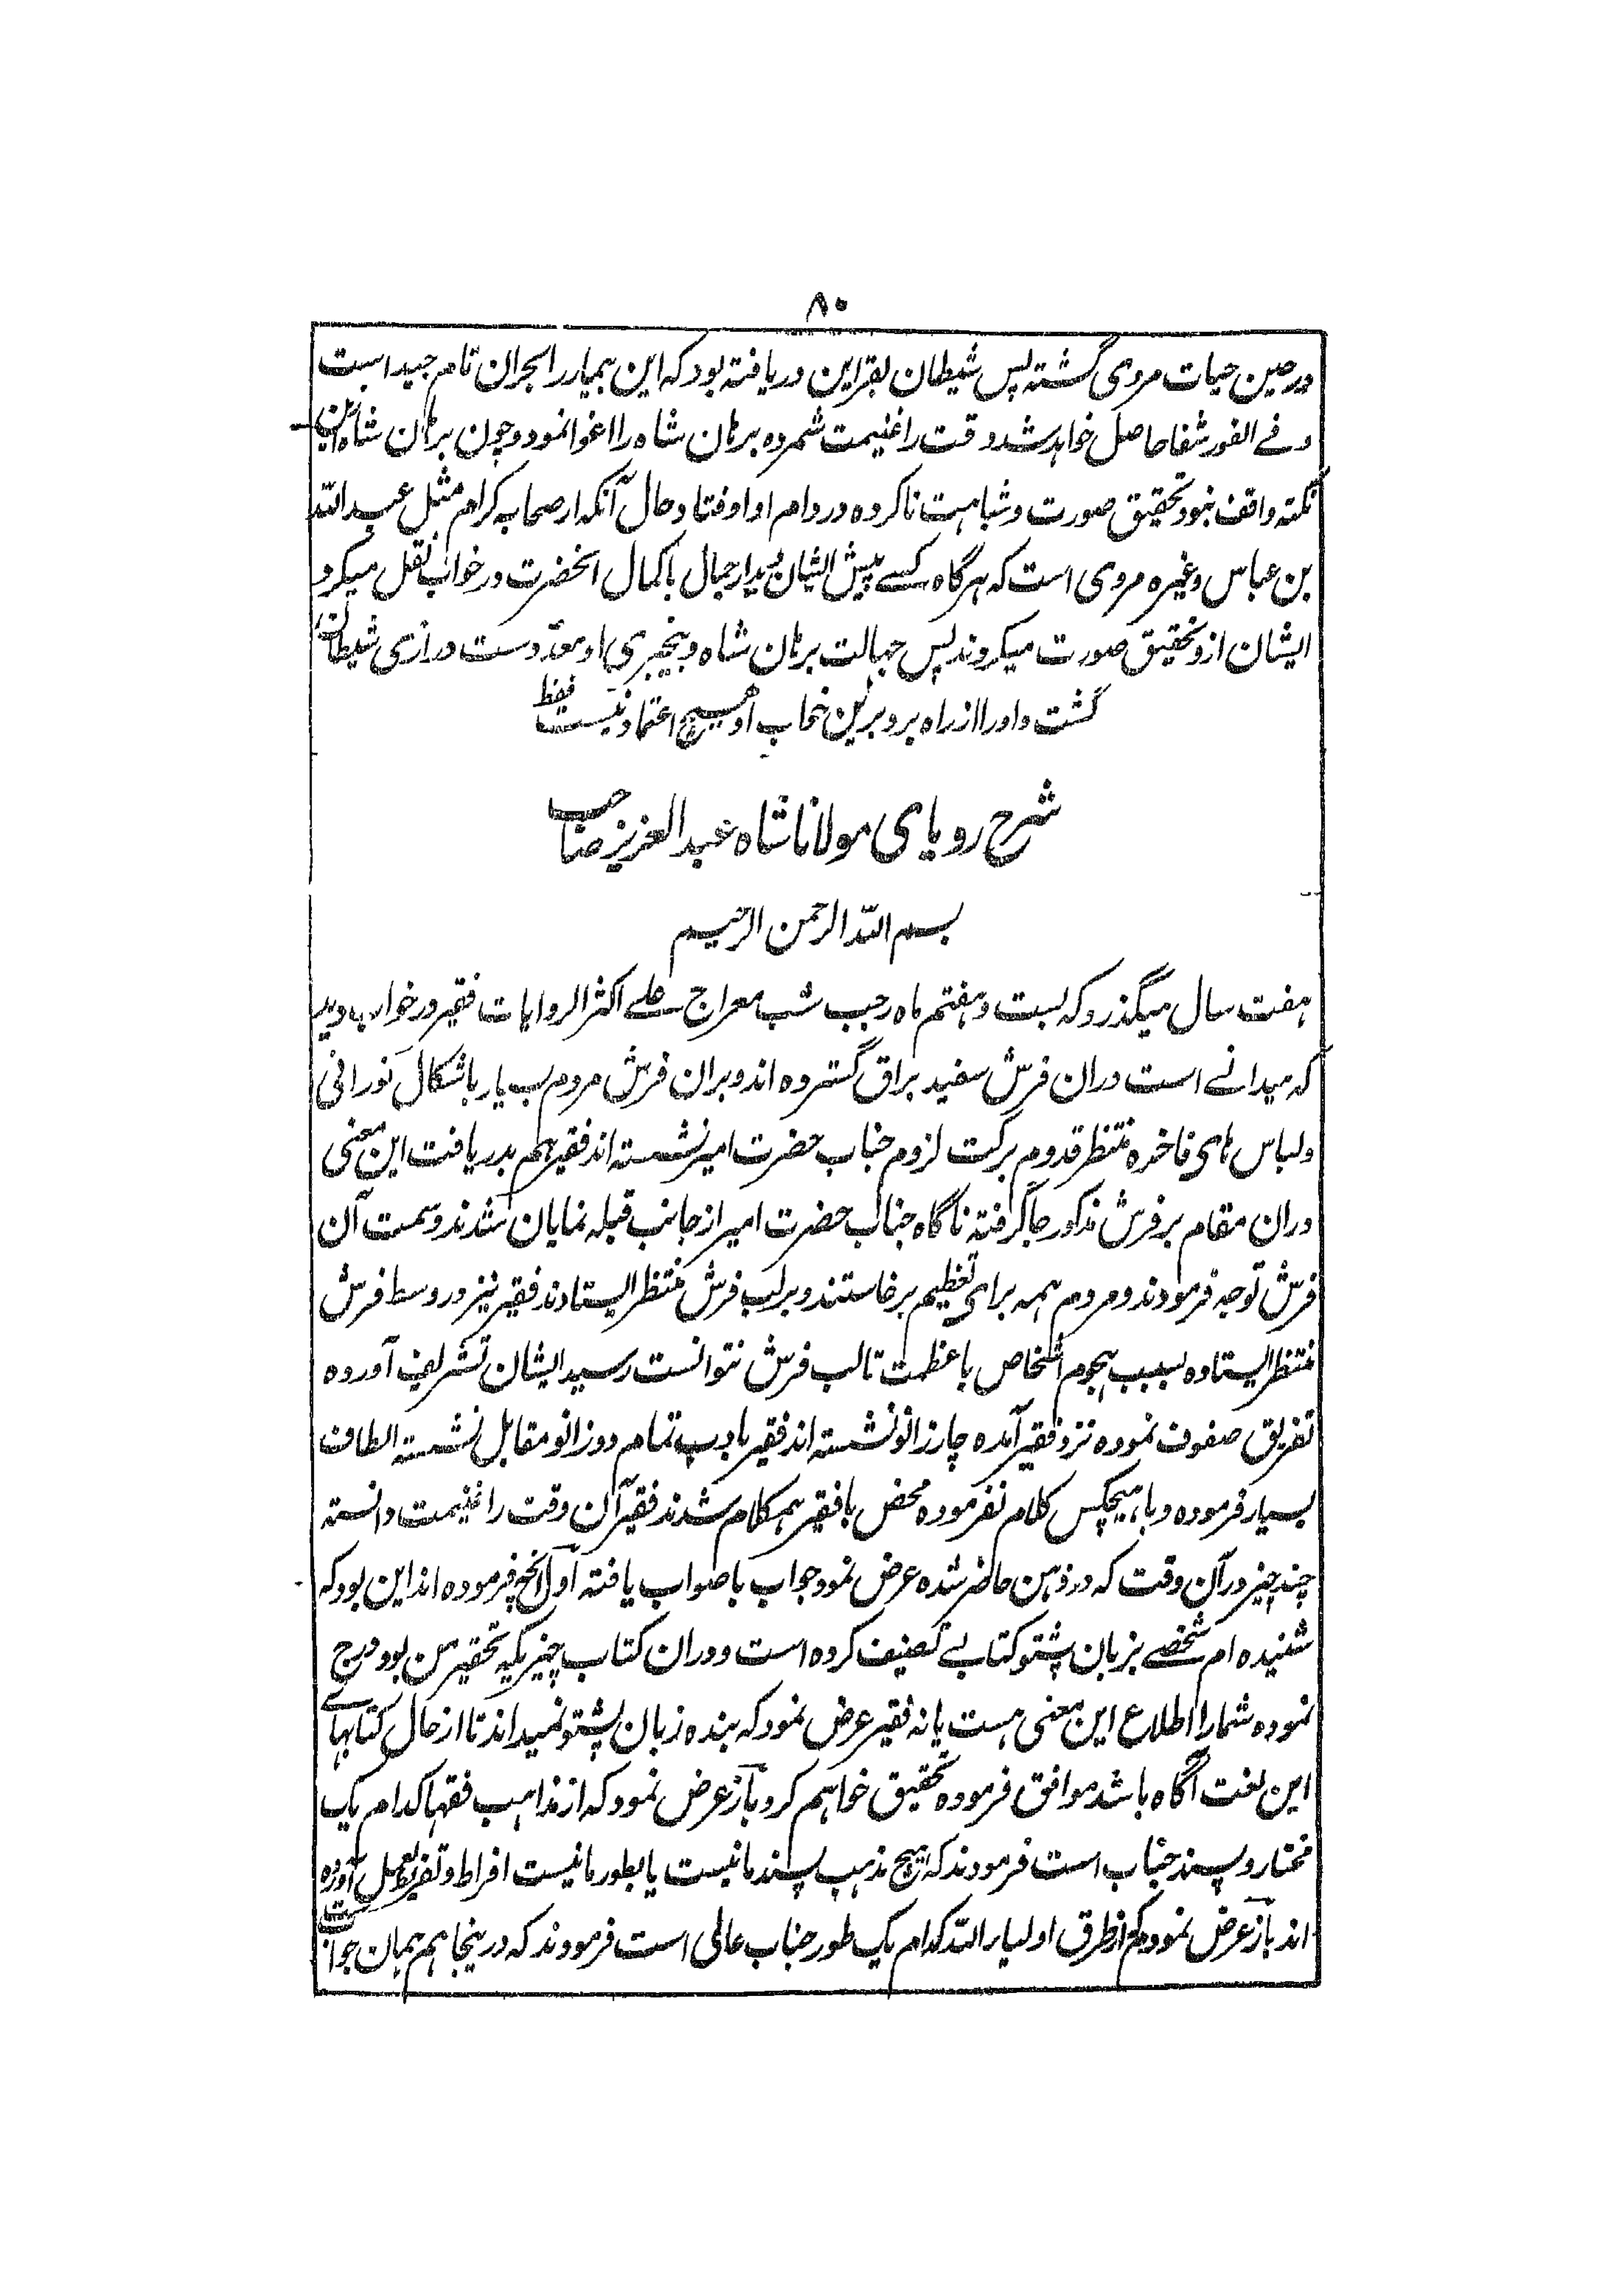 ۸۰
در حین حیات مروی گشته پس شیطان بقراین دریافته بود که این بیمار را بحران تام جید است
و فے الفور شفا حاصل خواهد شد وقت را غنیمت شمرده برهان شاه را اغوا نمود و چون برهان شاه ازین
نکته واقف نبود تحقیق صورت و شباهت ناکرده در دام او اوفتاد و حال آنکه از صحابه کرام مثل عبد الله
بن عباس وغیره مروی است که هرگاه کسے پیش ایشان دیدار جمال باکمال آنحضرت در خواب نقل میکرد
ایشان ازو تحقیق صورت میکردند پس جهالت برهان شاه و بیخبری او موقع دست درازی شیطان
گشت و اورا از راه برد برین خواب او هیچ اعتماد نیست فقط
شرح رویای مولانا شاه عبد العزیز صاحب
بسم الله الرحمن الرحیم
هفت سال میگذرد که بست و هفتم ماه رجب شب معراج علے اکثر الروایات فقیر در خواب دید
که میدانے است دران فرش سفید براق گسترده اند و بران فرش مردم بسیار باشکال نورانی
و لباس های فاخره منتظر قدوم برکت لزوم جناب حضرت امیر نشسته اند فقیر هم بدریافت این معنی
دران مقام بر فرش مذکور جا گرفته ناگاه جناب حضرت امیر از جانب قبله نمایان شدند و سمت آن
فرش توجه فرمودند و مردم همه برای تعظیم برخاستند و بر لب فرش منتظر ایستادند فقیر نیز در وسط فرش
منتظر ایستاده بسبب هجوم اشخاص با عظمت تا لب فرش نتوانست رسید ایشان تشریف آورده
تفریق صفوف نموده نزد فقیر آمده چار زانو نشسته اند فقیر با دب تمام دوزانو مقابل نشسته الطاف
بسیار فرموده و با هیچکس کلام نفرموده محض با فقیر همکلام شدند فقیر آن وقت را غنیمت دانسته
چند چیز در آن وقت که در ذهن حاضر شده عرض نمود جواب با صواب یافته اول آنچه فرموده اند این بود که
شنیده ام شخصے بزبان پشتو کتابے تصنیف کرده است و دران کتاب چیزیکه تحقیر من بود درج
نموده شما را اطلاع این معنی هست یا نه فقیر عرض نمود که بنده زبان پشتو نمیداند تا از حال کتابهاے
این لغت آگاه باشد موافق فرموده تحقیق خواهم کرد باز عرض نمود که از مذاهب فقها کدام یک
مختار و پسند جناب است فرمودند که هیچ مذهب پسند ما نیست یا بطور ما نیست افراط و تفریط بعمل آورده
اند باز عرض نمودم که از طرق اولیاء الله کدام یک طور جناب عالی است فرمودند که درینجا هم همان جواب است